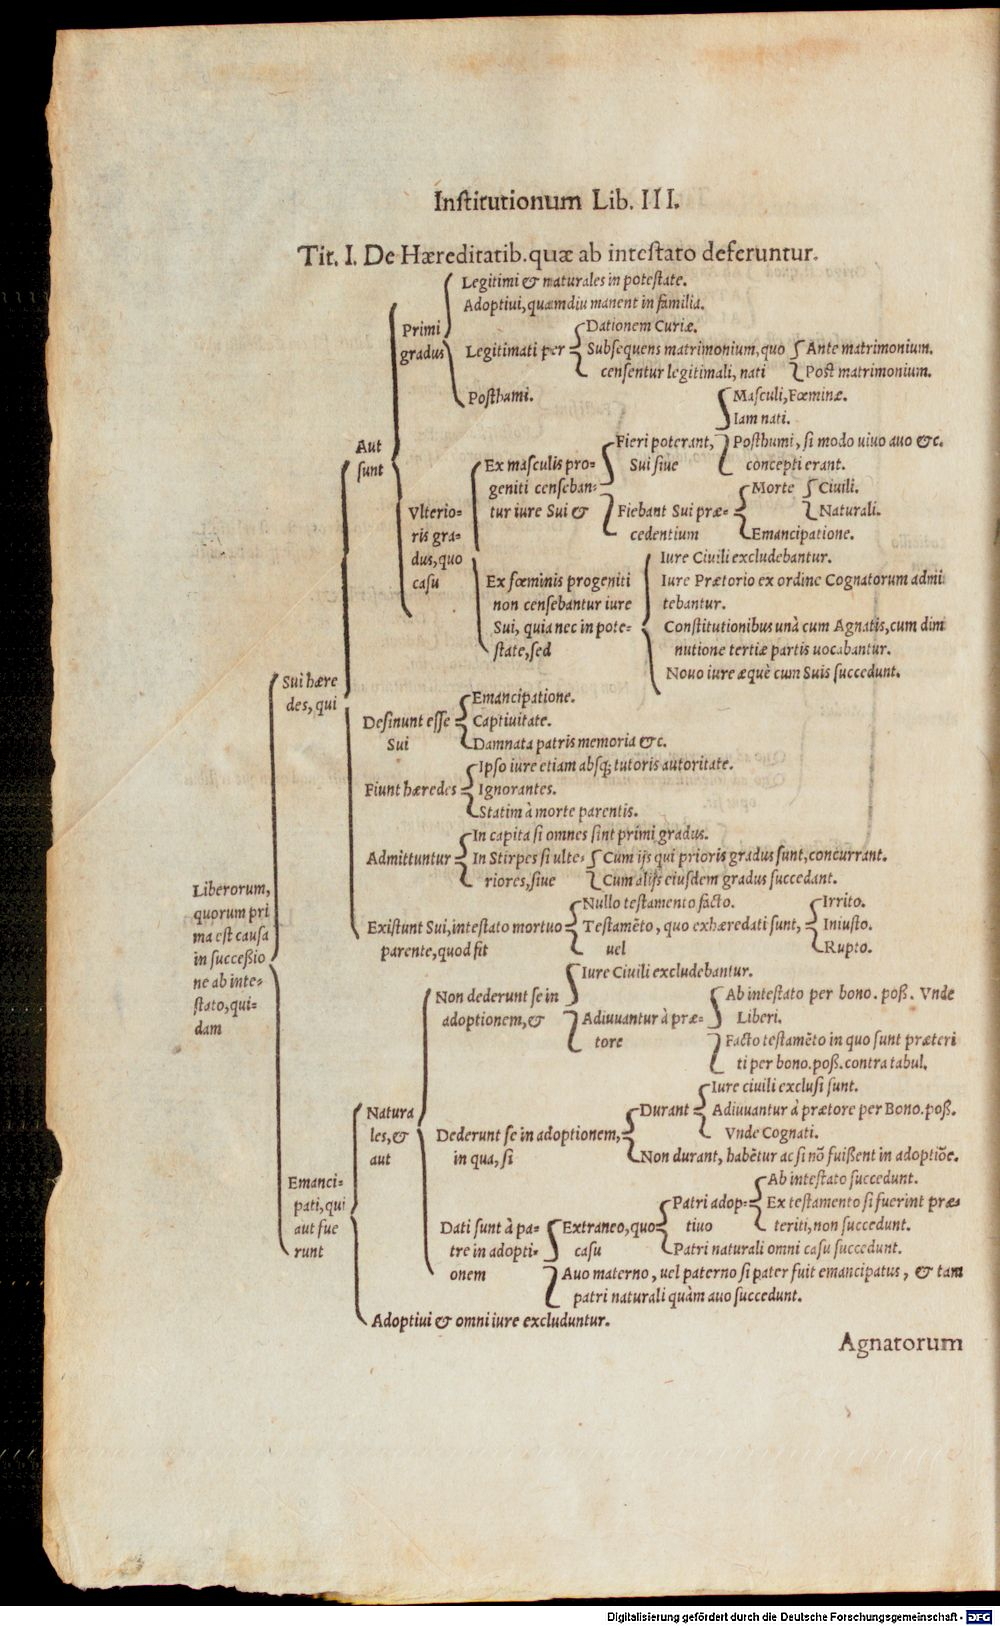 Inſtitutionum Lib. III.
Tit. I. De Hæreditatib. quæ ab inteſtato deferuntur.
Liberorum,
quorum pri
ma est cauſa
in ſucceßio
ne ab inte-
ſtato, qui-
dam
Sui hære
des, qui
Aut
ſunt
Primi
gradus
Legitimi & naturales in poteſtate.
Adoptiui, quamdiu manent in familia.
Legitimati per
Dationem Curiæ.
Subſequens matrimonium, quo
cenſentur legitimali, nati
Ante matrimonium.
Poſt matrimonium.
Poſthumi.
Vlterio-
ris gra-
dus, quo
caſu
Ex maſculis pro-
geniti cenſeban-
tur iure Sui &
Fieri poterant,
Sui ſiue
Maſculi, Fœminæ.
Iam nati.
Poſthumi, ſi modo uiuo auo &c.
concepti erant.
Fiebant Sui præ-
cedentium
Morte
Ciuili.
Naturali.
Emancipatione.
Ex fœminis progeniti
non cenſebantur iure
Sui, quia nec in pote-
ſtate, ſed
Iure Ciuili excludebantur.
Iure Prætorio ex ordine Cognatorum admi
tebantur.
Conſtitutionibus unà cum Agnatis, cum dim
nutione tertiæ partis uocabantur.
Nouo iure æquè cum Suis ſuccedunt.
Deſinunt eſſe
Sui
Emancipatione.
Captiuitate.
Damnata patris memoria &c.
Fiunt hæredes
Ipſo iure etiam absq; tutoris autoritate.
Ignorantes.
Statim à morte parentis.
Admittuntur
In capita ſi omnes ſint primi gradus.
In Stirpes ſi ulte-
riores, ſiue
Cum ijs qui prioris gradus ſunt, concurrant.
Cum alijs eiuſdem gradus ſuccedant.
Exiſtunt Sui, inteſtato mortuo
parente, quod fit
Nullo teſtamento facto.
Teſtamẽto, quo exhæredati ſunt,
uel
Irrito.
Iniuſto.
Rupto.
Emanci-
pati, qui
aut fue
runt
Natura
les, &
aut
Non dederunt ſe in
adoptionem, &
Iure Ciuili excludebantur.
Adiuuantur à præ-
tore
Ab inteſtato per bono. poß. Vnde
Liberi.
Facto teſtamẽto in quo ſunt præteri
ti per bono. poß. contra tabul.
Dederunt ſe in adoptionem,
in qua, ſi
Durant
Iure ciuili excluſi ſunt.
Adiuuantur à prætore per Bono. poß.
Vnde Cognati.
Non durant, habẽtur ac ſi nõ fuißent in adoptiõe.
Dati ſunt à pa-
tre in adopti-
onem
Extraneo, quo
caſu
Patri adop-
tiuo
Ab inteſtato ſuccedunt.
Ex teſtamento ſi fuerint præ-
teriti, non ſuccedunt.
Patri naturali omni caſu ſuccedunt.
Auo materno, uel paterno ſi pater fuit emancipatus, & tam
patri naturali quàm auo ſuccedunt.
Adoptiui & omni iure excluduntur.
Agnatorum
Digitalisierung gefördert durch die Deutsche Forschungsgemeinschaft - DFG